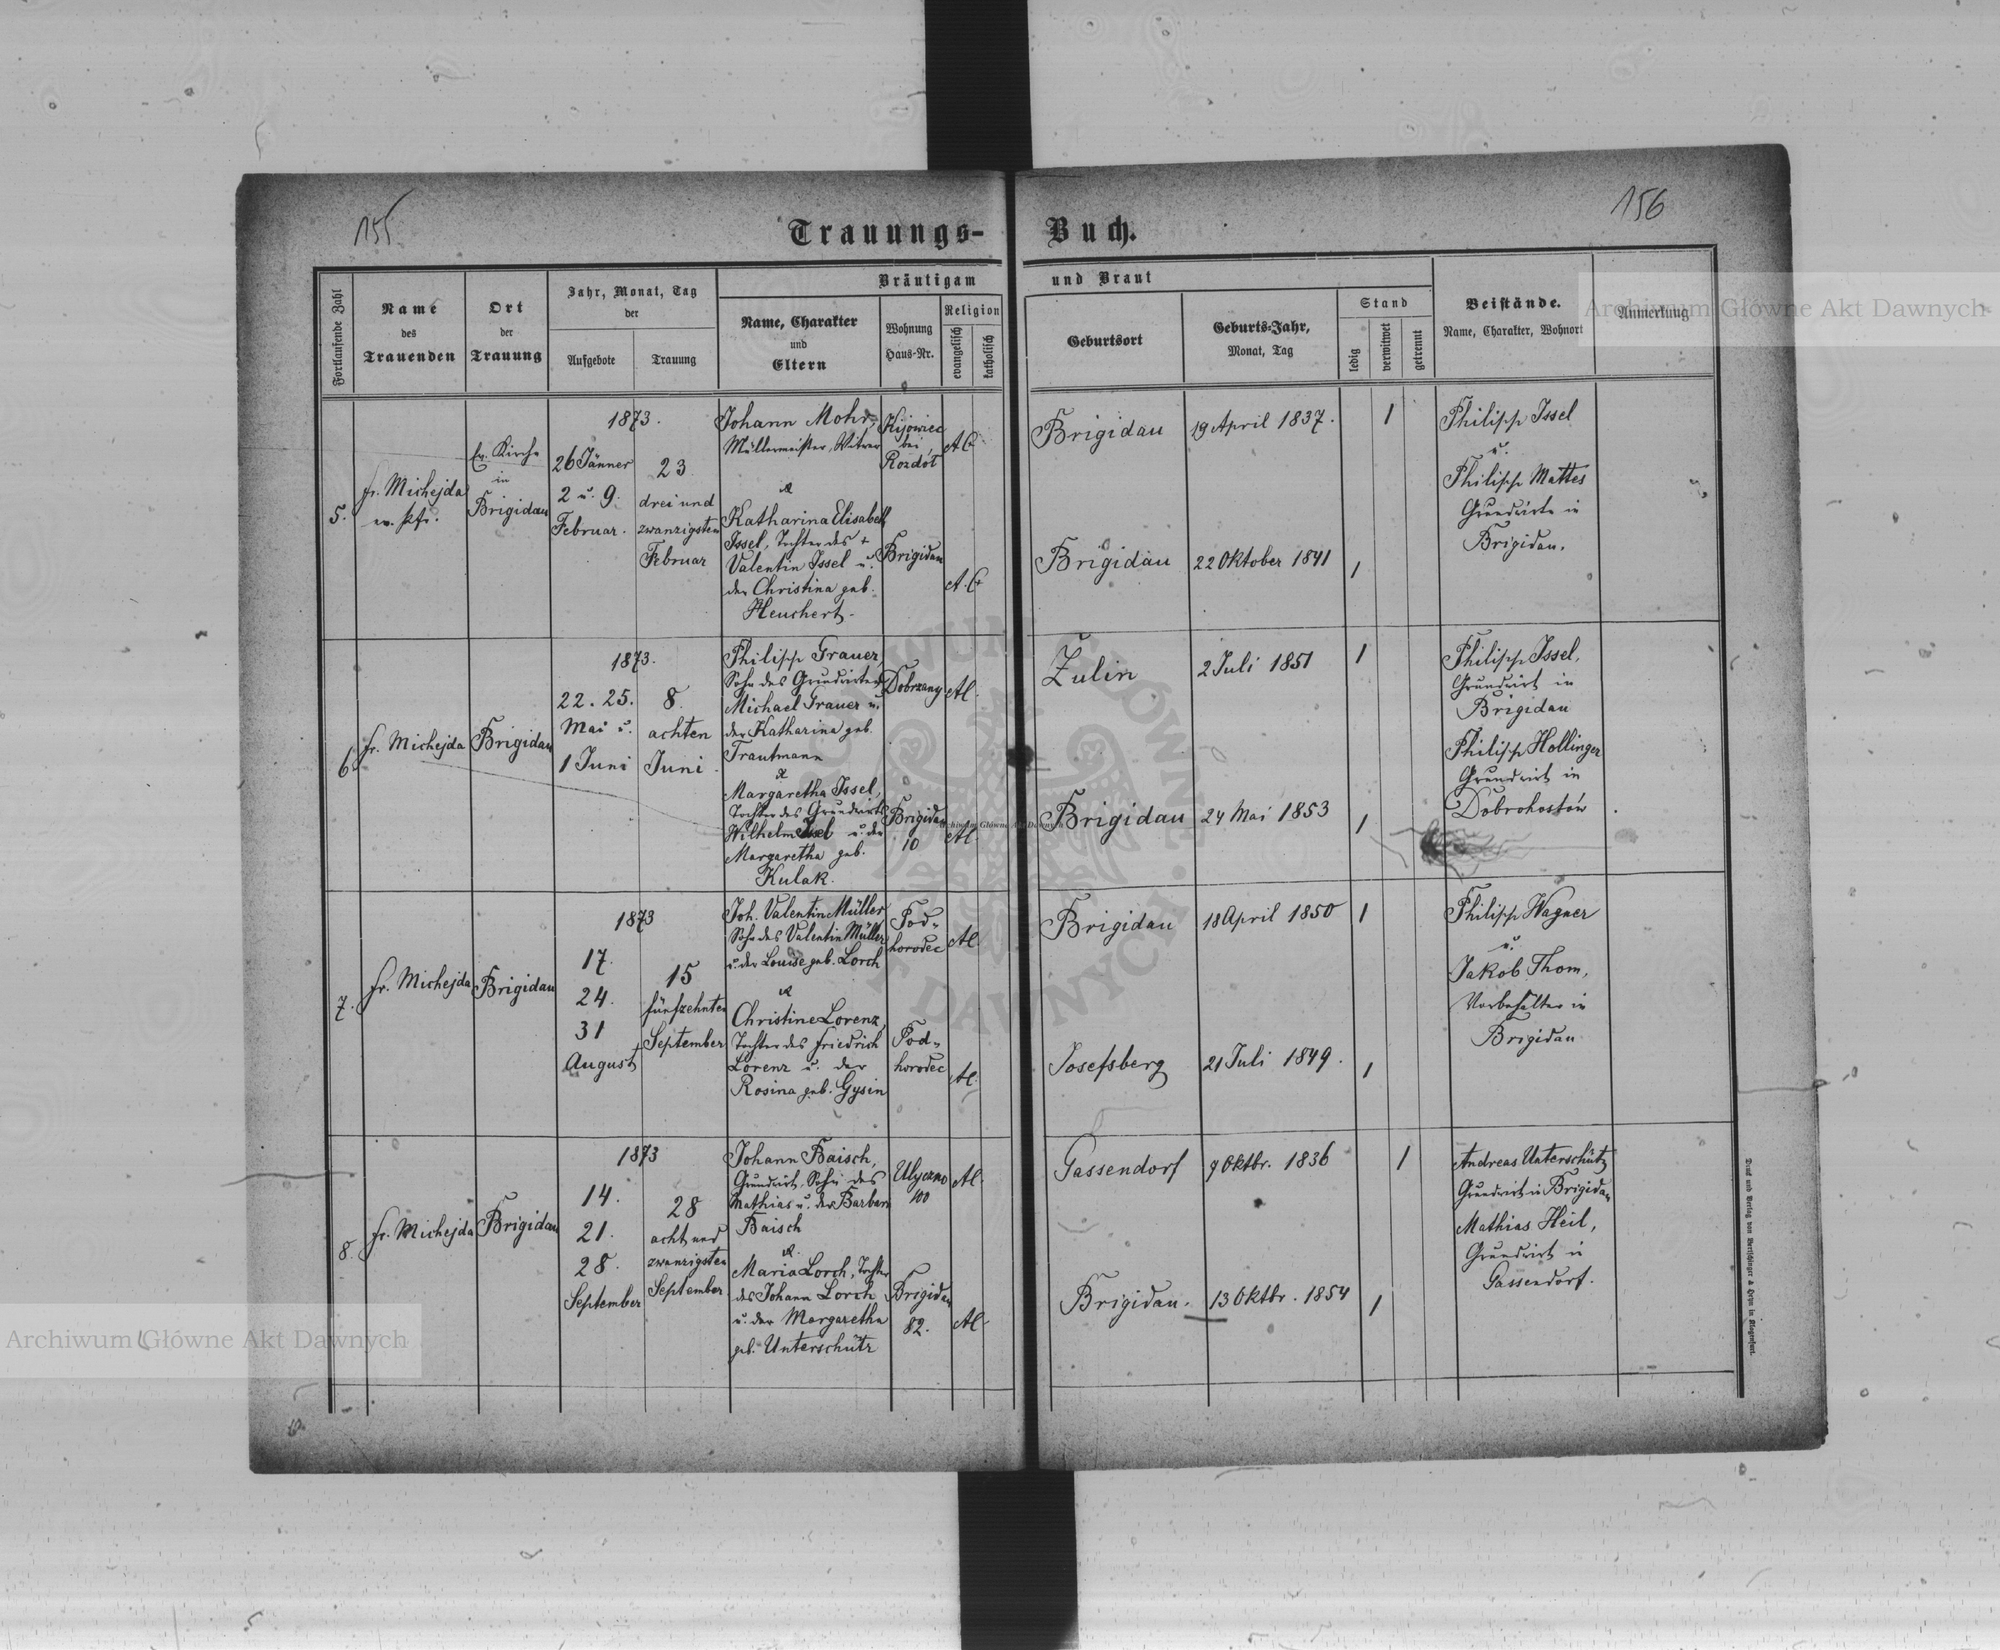 155
156
Trauungs-
Buch.
Fortlaufende Zahl
Name
des
Trauenden
Ort
der
Trauung
Jahr, Monat, Tag
der
Aufgebote
Trauung
Bräutigam
und Braut
Name, Charakter
und
Eltern
Wohnung
Haus-Nr.
Religion
evangelisch
katholisch
Geburtsort
Geburts-Jahr,
Monat, Tag
Stand
ledig
verwitwet
getrennt
Beistände.
Name, Charakter, Wohnort
Anmerkung
5.
fr. Michejda
ev. Pfr.
Ev. Kirche
in
Brigidau
1873.
26 Jänner
2 u. 9.
Februar.
23
drei und
zwanzigsten
Februar
Johann Mohr,
Müllermeister, Witwer
&
Katharina Elisabeth
Issel, Tochter des +
Valentin Issel u.
der Christina geb.
Heuchert.
Kijowiec
bei
Rozdół
Brigidau
A C
A. C
Brigidau
19 April 1837.
1
Brigidau
22 Oktober 1841
1
Philipp Issel
u.
Philipp Mattes
Grundwirte in
Brigidau.
6.
fr. Michejda
Brigidau
1873.
22. 25.
Mai u.
1 Juni
8.
achten
Juni
Philipp Grauer,
Sohn des Grundwirten
Michael Grauer u.
der Katharina geb.
Trautmann
&
Margaretha Issel,
Tochter des Grundwirts
Wilhelm Issel u. der
Margaretha geb.
Kulak.
Dobrzany
Brigidau
10
AC.
AC.
Zulin
2 Juli 1851
1
Brigidau
24 Mai 1853
1
Philipp Issel,
Grundwirt in
Brigidau
Philipp Hollinger
Grundwirt in
Dobrohostów
7.
fr. Michejda
Brigidau
1873
17.
24.
31
August
15
fünfzehnten
September
Joh. Valentin Müller
Sohn des Valentin Müller
u. der Louise geb. Lorch
&
Christine Lorenz,
Tochter des Friedrich
Lorenz u. der
Rosina geb. Gysin
Pod-
horodec
Pod-
horodec
AC.
AC.
Brigidau
18 April 1850
1
Josefsberg
21 Juli 1849.
1
Philipp Wagner
u.
Jakob Thom,
Vorbehälter in
Brigidau
8.
fr. Michejda
Brigidau
1873
14.
21.
28.
September
28
acht und
zwanzigsten
September
Johann Baisch,
Grundwirt, Sohn des
Mathias u. der Barbara
Baisch
&
Maria Lorch, Tochter
des Johann Lorch
u. der Margaretha
geb. Unterschütz
Ulyczno
100
Brigidau
82.
AC.
AC.
Gassendorf
9 Oktbr. 1836
1
Brigidau.
13 Oktbr. 1854
1
Andreas Unterschütz
Grundwirt in Brigidau
Mathias Heil,
Grundwirt in
Gassendorf.
Archiwum Główne Akt Dawnych
Archiwum Główne Akt Dawnych
Archiwum Główne Akt Dawnych